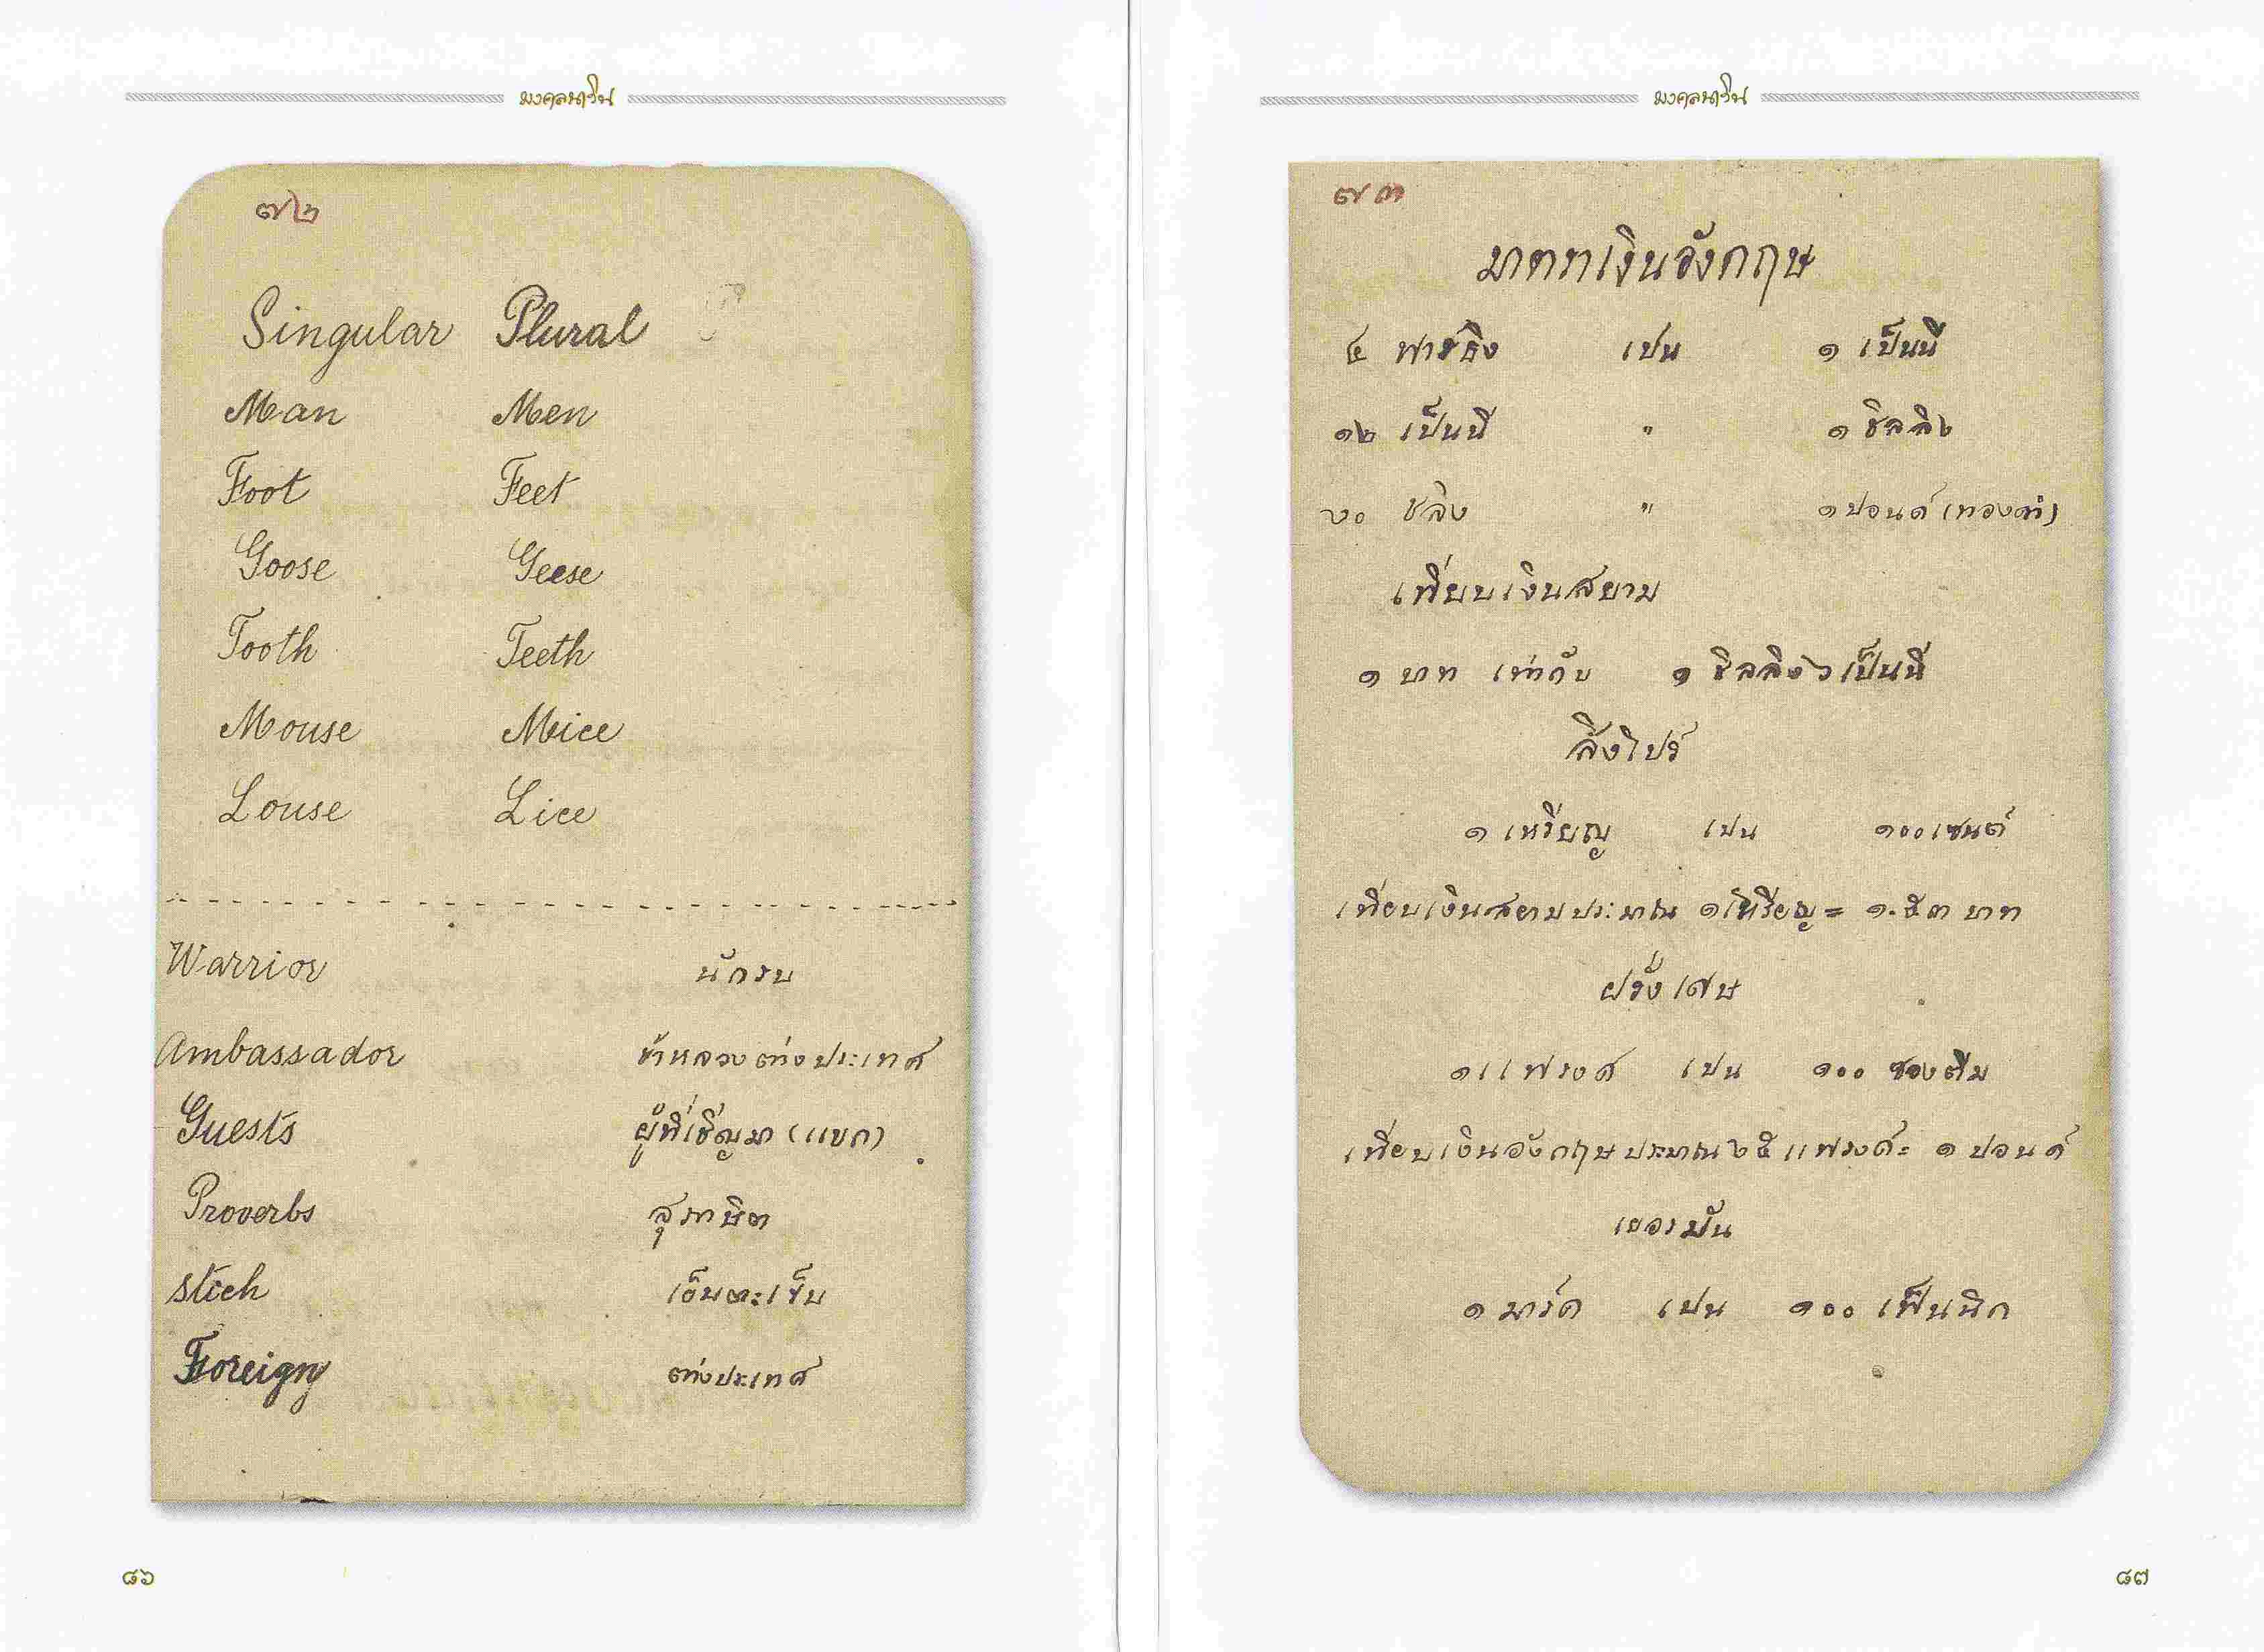 มงคลนาวิน
๗๒
Singular Plural
Man Men
Foot Feet
Goose Geese
Tooth Teeth
Mouse Mice
Louse Lice
Warrior นักรบ
Ambassador ข้าหลวงต่างประเทศ
Guests ผู้ที่เชิญมา (แขก)
Proverbs สุภาษิต
stich เอ็นตะเข็บ
Foreign ต่างประเทศ
๘๖
มงคลนาวิน
๗๓
มาตราเงินอังกฤษ
๔ ฟาร์ธิง เปน ๑ เป็นนี
๑๒ เป็นนี " ๑ ชิลลิง
๒๐ ชลิง " ๑ ปอนด์ (ทองคำ)
เทียบเงินสยาม
๑ บาท เท่ากับ ๑ ชิลลิง ๖ เป็นนี
สิงโปร์
๑ เหรียญ เปน ๑๐๐ เซนต์
เทียบเงินสยามประมาณ ๑ เหรียญ = ๑.๕๓ บาท
ฝรั่งเศษ
๑ แฟรงค์ เปน ๑๐๐ ซองตีม
เทียบเงินอังกฤษประมาณ ๒๕ แฟรงค์ = ๑ ปอนด์
เยอรมัน
๑ มาร์ค เปน ๑๐๐ เฟ็นนิก
๘๗